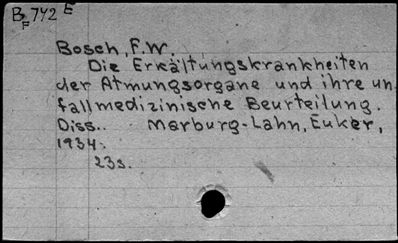 B 742 E
F
Bosch, F.W.
Die Erkältungskrankheiten
der Atmungsorgane und ihre un
fallmedizinische Beurteilung.
Diss.. Marburg-Lahn, Euker,
1934.
23s.